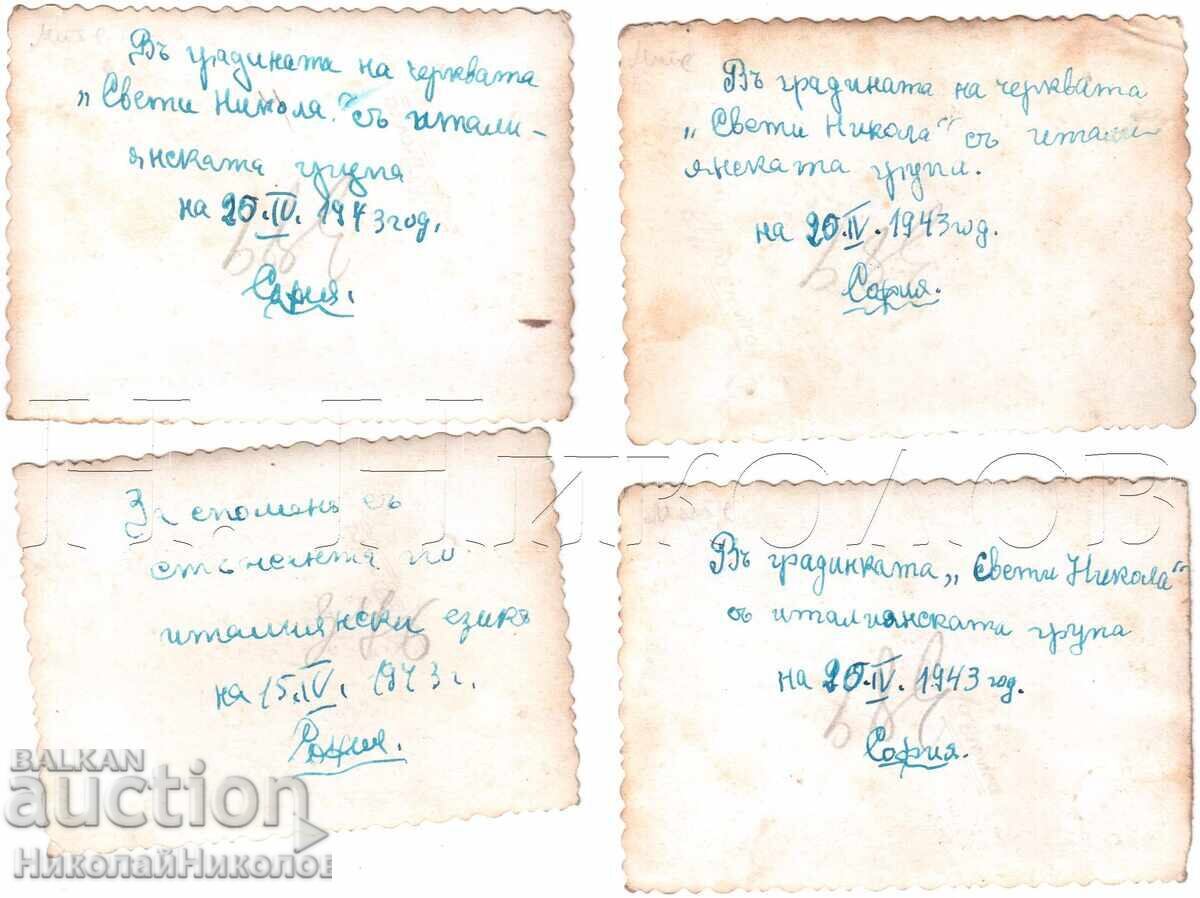 Въ градината на черквата
„Свети Никола" съ итали-
янската група
на 20.IV. 1943 год.
София.
Въ градината на черквата
„Свети Никола" съ итали-
янската група.
на 20.IV. 1943 год.
София.
За споменъ съ
по
италиянски езикъ
на 15.IV. 1943 г.
София.
Въ градинката „Свети Никола"
съ италианската група
на 20.IV. 1943 год.
София.
Н. НИКОЛОВ
BALKAN
auction
НиколайНиколов